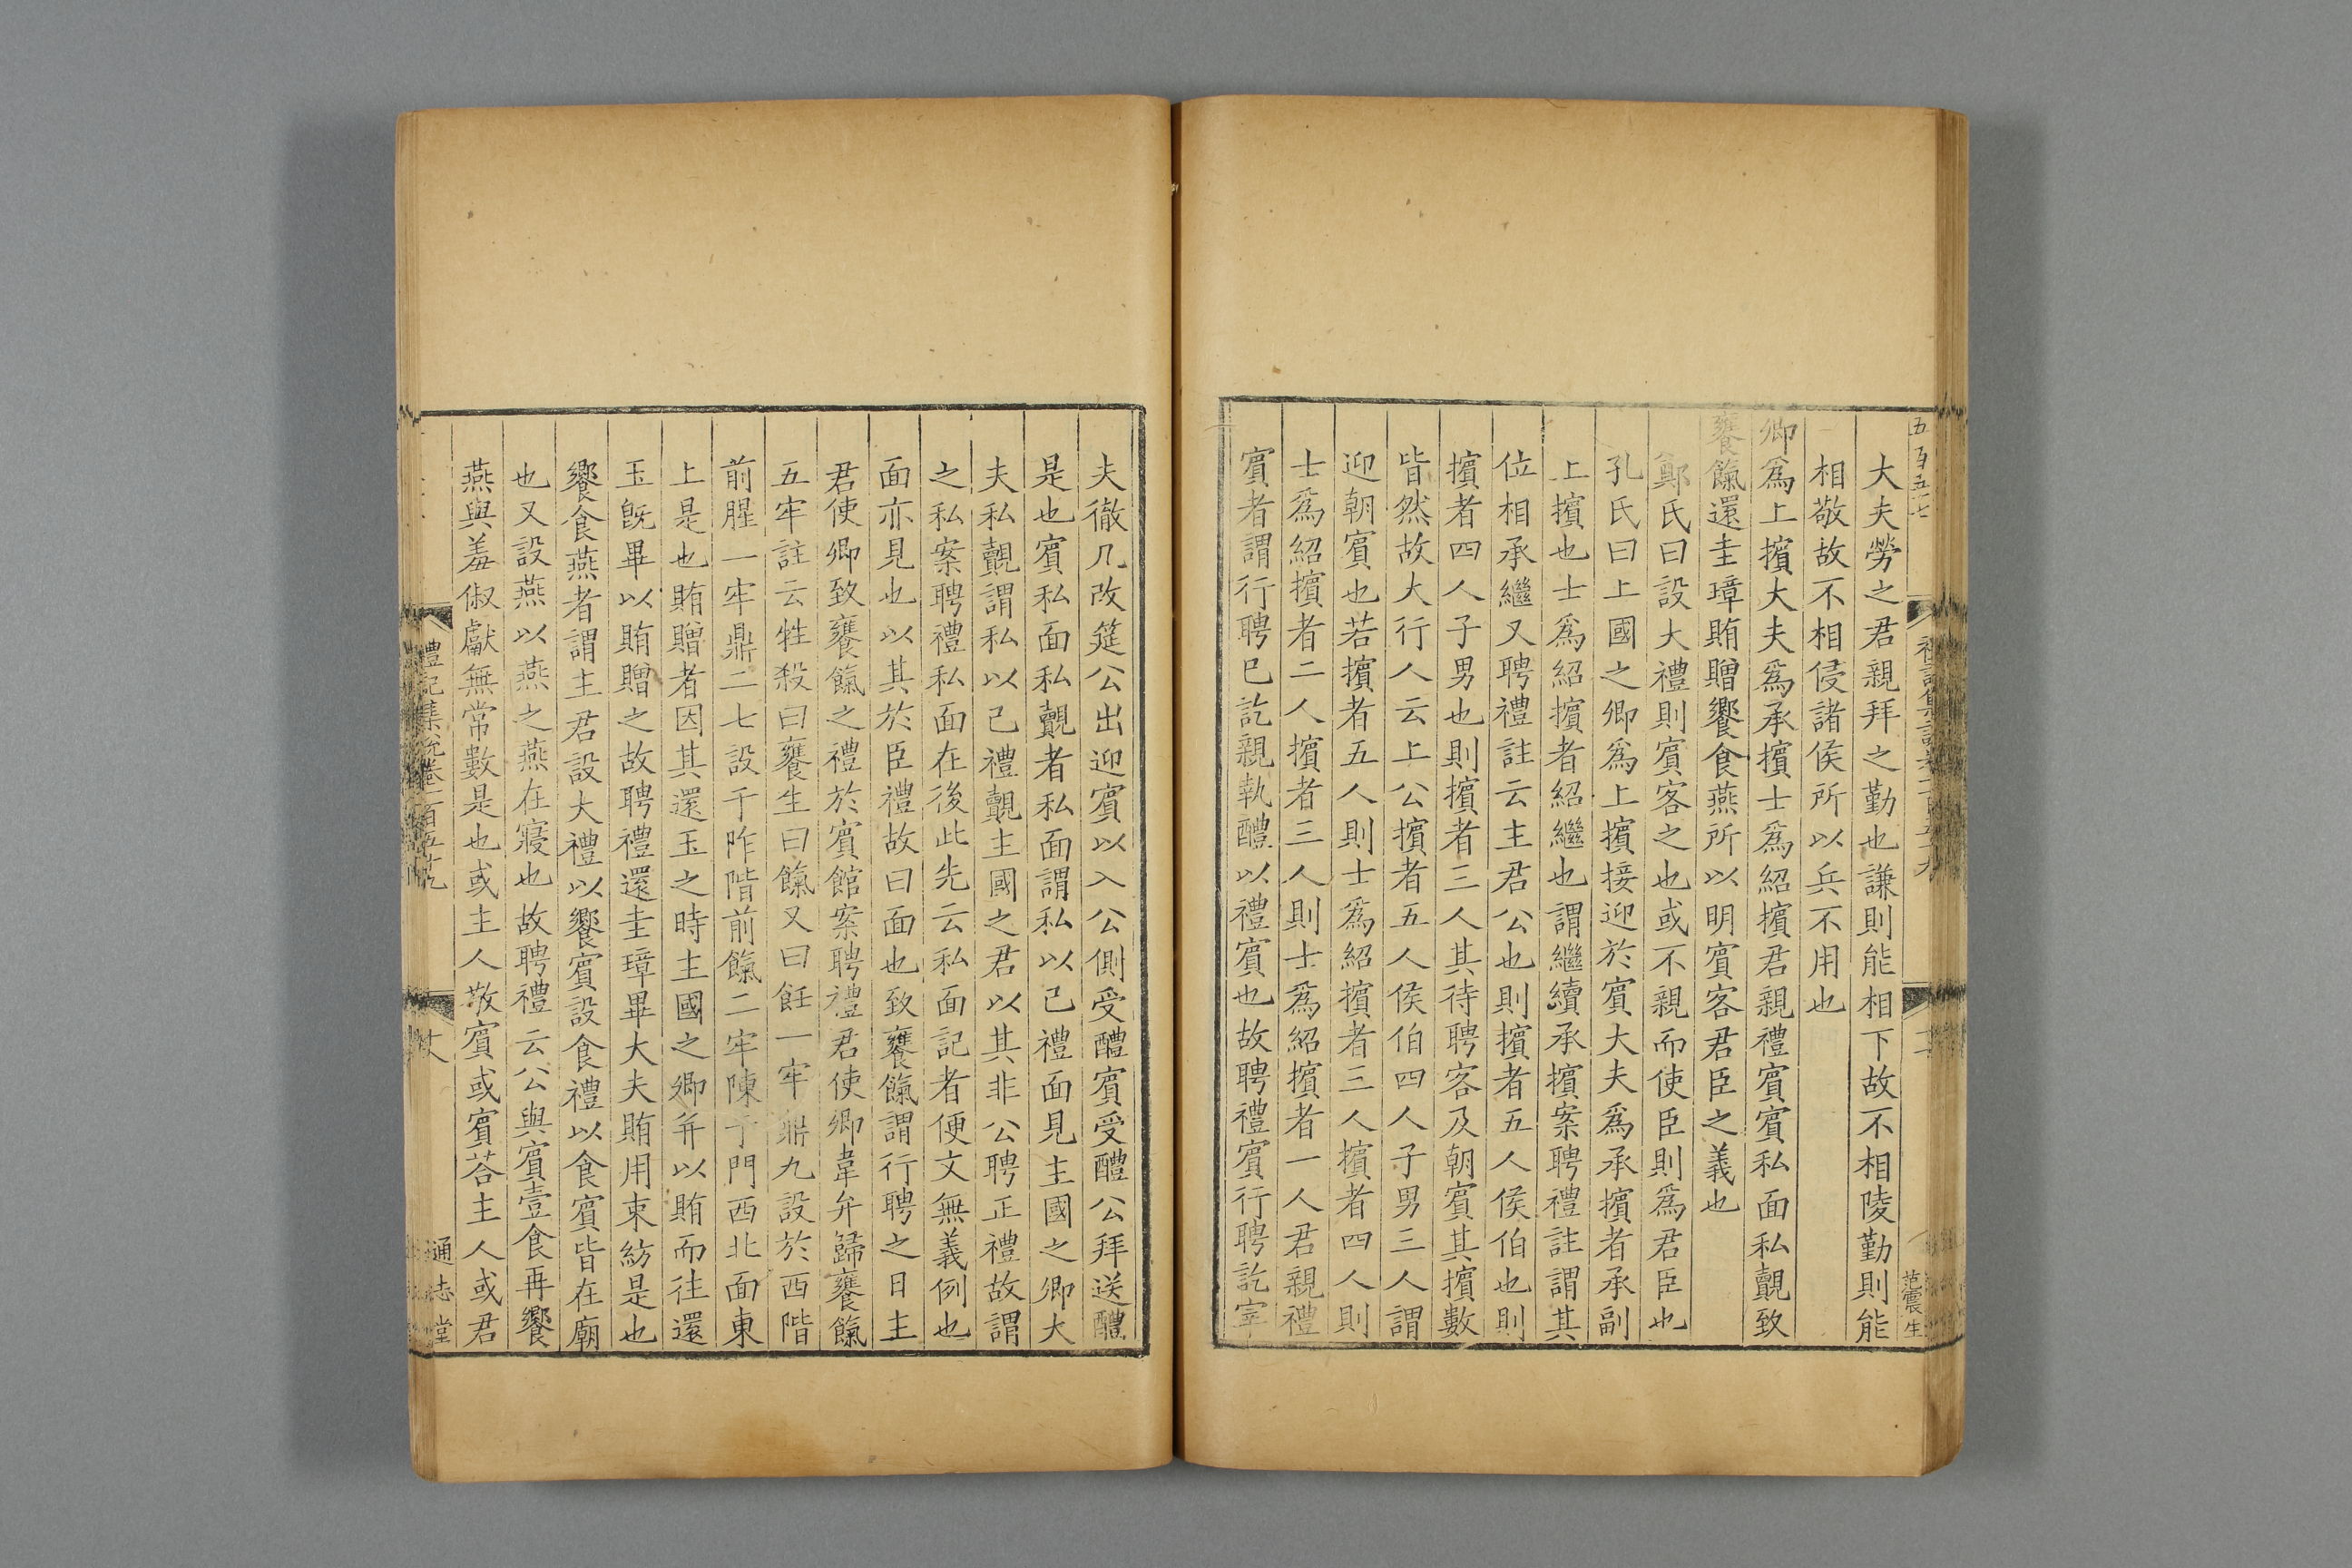 大夫勞之君親拜之勤也謙則能相下故不相陵勤則能
相敬故不相侵諸侯所以兵不用也
卿爲上擯大夫爲承擯士爲紹擯君親禮賓賓私面私覿致
饔餼還圭璋賄贈饗食燕所以明賓客君臣之義也
鄭氏曰設大禮則賓客之也或不親而使臣則爲君臣也
孔氏曰上國之卿爲上擯接迎於賓大夫爲承擯者承副
上擯也士爲紹擯者紹繼也謂繼續承擯案聘禮註謂其
位相承繼又聘禮註云主君公也則擯者五人侯伯也則
擯者四人子男也則擯者三人其待聘客及朝賓其擯數
皆然故大行人云上公擯者五人侯伯四人子男三人謂
迎朝賓也若擯者五人則士爲紹擯者三人擯者四人則
士爲紹擯者二人擯者三人則士爲紹擯者一人君親禮
賓者謂行聘已訖親執醴以禮賓也故聘禮賓行聘訖宰
夫徹几改筵公出迎賓以入公側受醴賓受醴公拜送醴
是也賓私面私覿者私面謂私以己禮面見主國之卿大
夫私覿謂私以己禮覿主國之君以其非公聘正禮故謂
之私案聘禮私面在後此先云私面記者便文無義例也
面亦見也以其於臣禮故曰面也致饔餼謂行聘之日主
君使卿致饔餼之禮於賓館案聘禮君使卿韋弁歸饔餼
五牢註云牲殺曰饔生曰餼又曰飪一牢鼎九設於西階
前腥一牢鼎二七設于阼階前餼二牢陳于門西北面東
上是也賄贈者因其還玉之時主國之卿并以賄而往還
玉旣畢以賄贈之故聘禮還圭璋畢大夫賄用束紡是也
饗食燕者謂主君設大禮以饗賓設食禮以食賓皆在廟
也又設燕以燕之燕在寢也故聘禮云公與賓壹食再饗
燕與羞俶獻無常數是也或主人敬賓或賓荅主人或君
范震生
通志堂